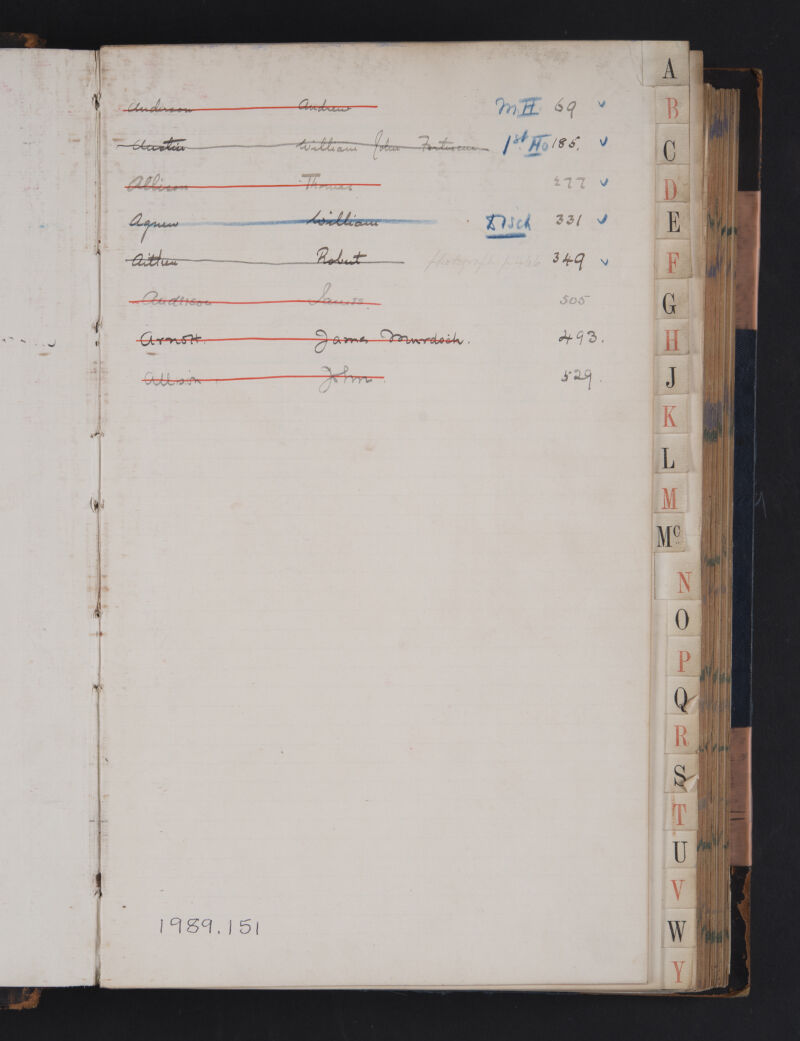 Anderson Andrew MII 69
Austin William John 1st Ho 185.
Allison Thomas 277
Agnew William Disch 331
Aitken Robert photograph p 466 349
Anderson James. 505
Arnott. James Murdoch. 493.
Allison. John. 529.
1989.151
A
B
C
D
E
F
G
H
J
K
L
M
Mc
N
O
P
Q
R
S
T
U
V
W
Y